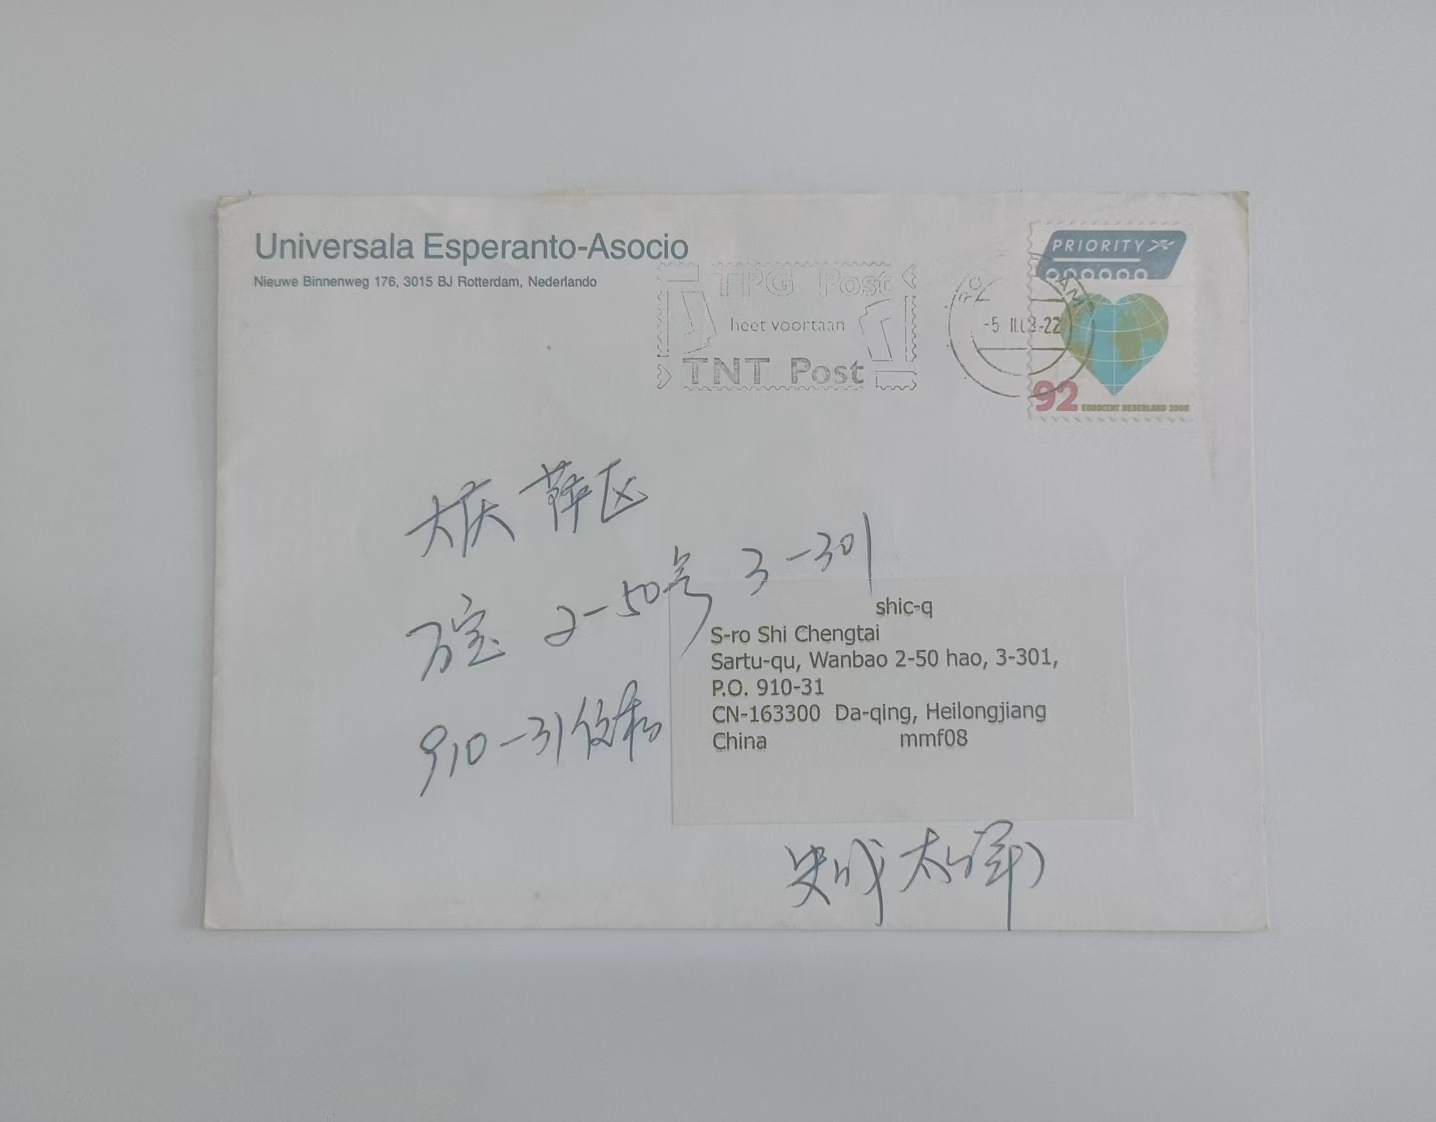 Universala Esperanto-Asocio
Nieuwe Binnenweg 176, 3015 BJ Rotterdam, Nederlando
TPG Post
heet voortaan
TNT Post
-5. II.08-22
PRIORITY
92 EUROCENT NEDERLAND 2008
大庆 萨区
万宝 2-50号 3-301
910-31信箱
shic-q
S-ro Shi Chengtai
Sartu-qu, Wanbao 2-50 hao, 3-301,
P.O. 910-31
CN-163300 Da-qing, Heilongjiang
China mmf08
史成太